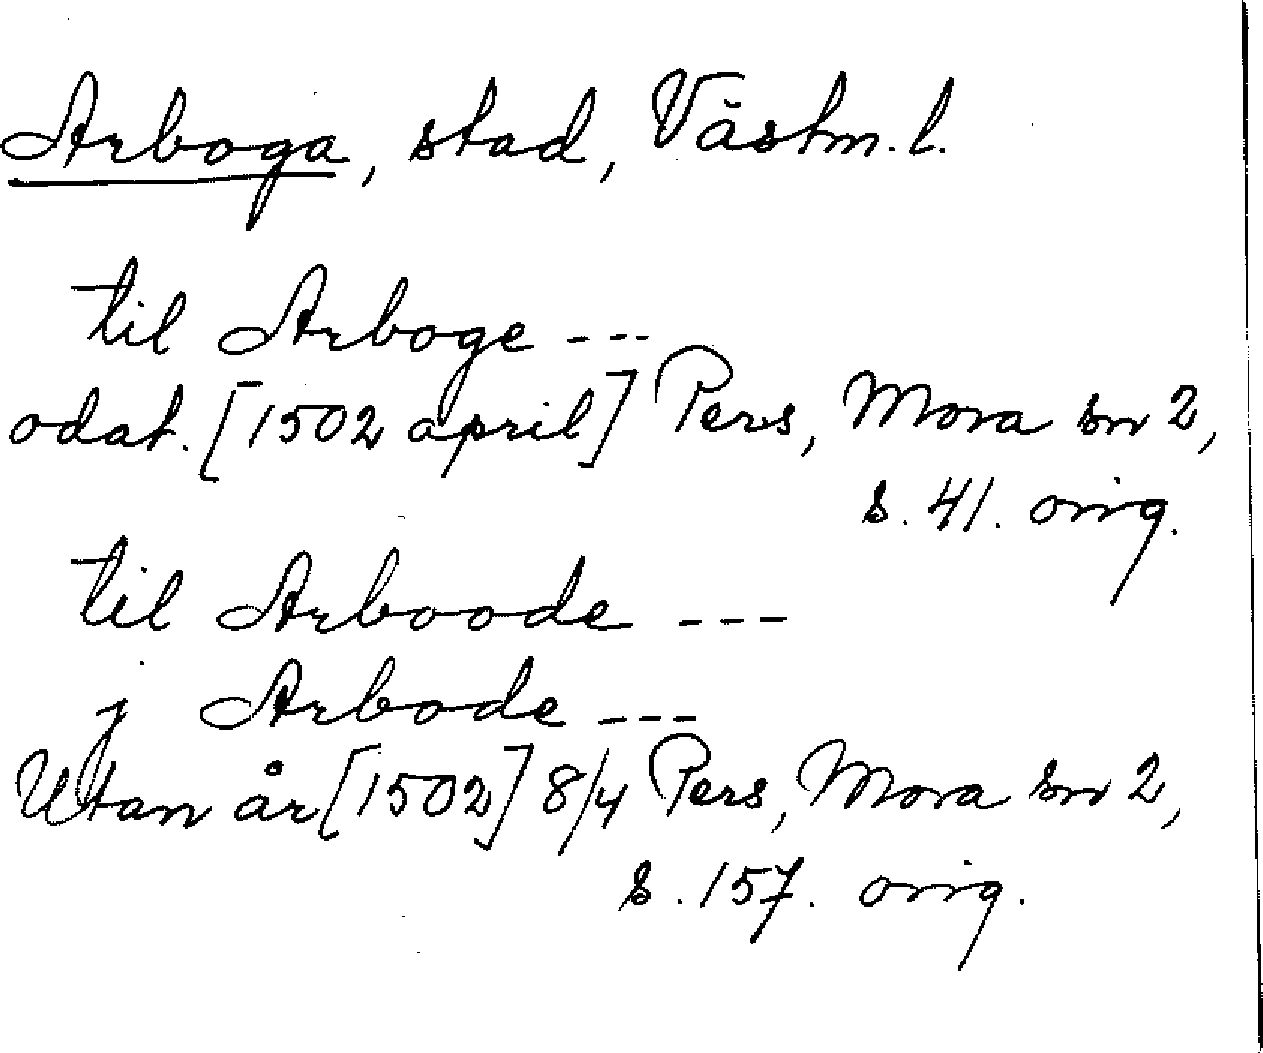 Arboga, stad, Västm. l.
til Arboge ---
odat. [1502 april] Pers, Mora sn 2,
s. 41. orig.
til Arboode ---
j Arbode ---
Utan år [1502] 8/4 Pers, Mora sn 2,
s. 157. orig.